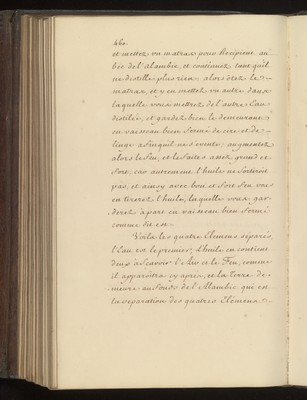 460.
et mettez un matras pour Recipient au
bec de l'alambic, et continuez tant qu'il
ne distille plus rien alors ôtez le
matras, et y en mettez un autre dans
laquelle vous mettrez de l'autre Eau
distilée, et gardez bien le demeurant
en vaisseau bien fermé de cire et de
linge afin qu'il ne s'evente, augmentez
alors le feu, et le faites assez grand et
fort car autrement l'huile ne sortiroit
pas, et ainsy avec bon et fort feu vous
en tirerez l'huile, laquelle vous gar-
derez à part en vaisseau bien fermé
comme dit est.
Voila les quatre Elemens séparés,
l'Eau est le premier, l'huile en contient
deux a sçavoir l'Air et le Feu, comme
il apparoitra cy après, et la Terre de-
meure au fonds de l'Alambic qui est
la separation des quatres Elemens